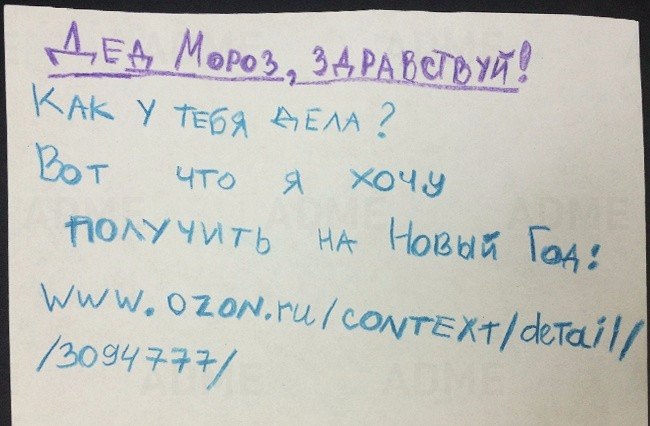 Дед Мороз, здравствуй!
Как у тебя дела?
Вот что я хочу
получить на Новый Год:
www.ozon.ru/context/detail/
/3094777/
ADME
ADME
ADME
ADME
ADME